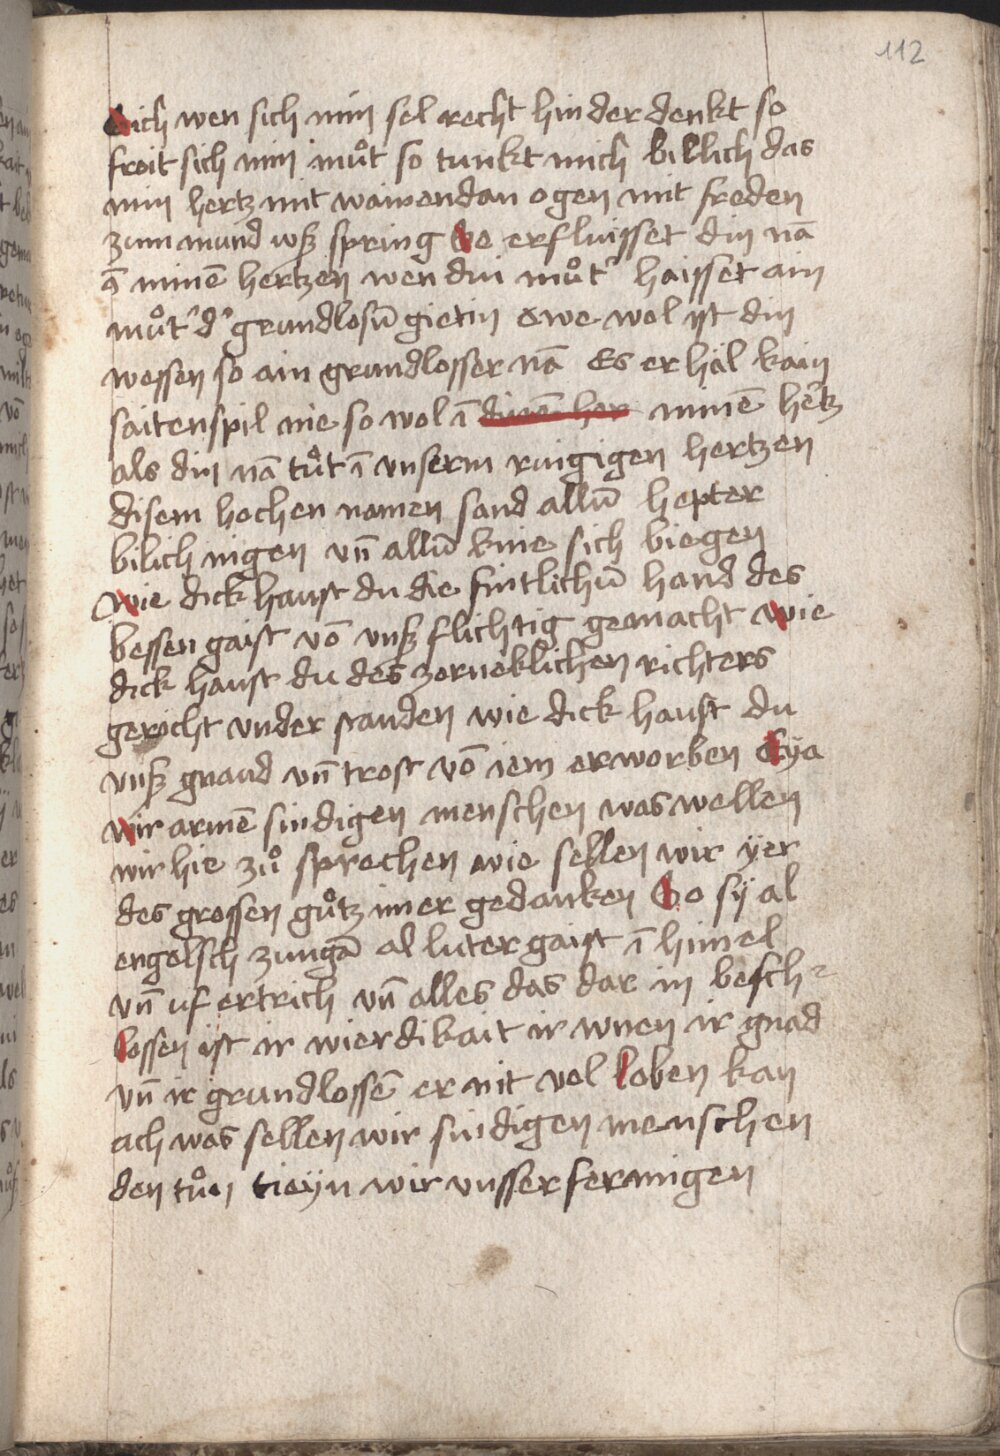 112
Dich wen sich min sel recht hinder denkt so
froit sich min muͦt so tunkt mich billich das
min hertz mit wainendan ogen mit freden
zum mund uſʒ spring So erfluisset din nā
ī minē hertzen wen dui muͦtʼ haisset ain
muͦtʼ dʼ grundlosū gietin Owe wol ist din
wessen so ain grundlosser nā Es er hal kain
saitenspil nie so wol ī dinē her minē hertz
als din nā tuͦt ī unserm ruigigen hertzen
disem hochen namen sand allū hepter
bilich nigen vn̄ allū knie sich biegen
wie dick haust du die fintlichū hand des
bessen gaist vō unß flichtig gemacht wie
dick haust du des zorneklichen richters
gericht vnder standen wie dick haust du
vnß gnaud vn̄ trost vō iem erworben Eya
wir armē sindigen menschen was wellen
wir hie zuͦ sprechen wie sellen wir ÿer
des grossen guͦtz imer gedanken So sÿ al
engelsch zungā al luter gaist ī himel
vn̄ uf ertrich vn̄ alles das dar in besch⸗
lossen ist ir wierdikait ir wnen ir gnad
vn̄ ir grundlossē er nit vol loben kan
ach was sellen wir sindigen menschen
den tuͦn tieÿn wir vnsser fermigen